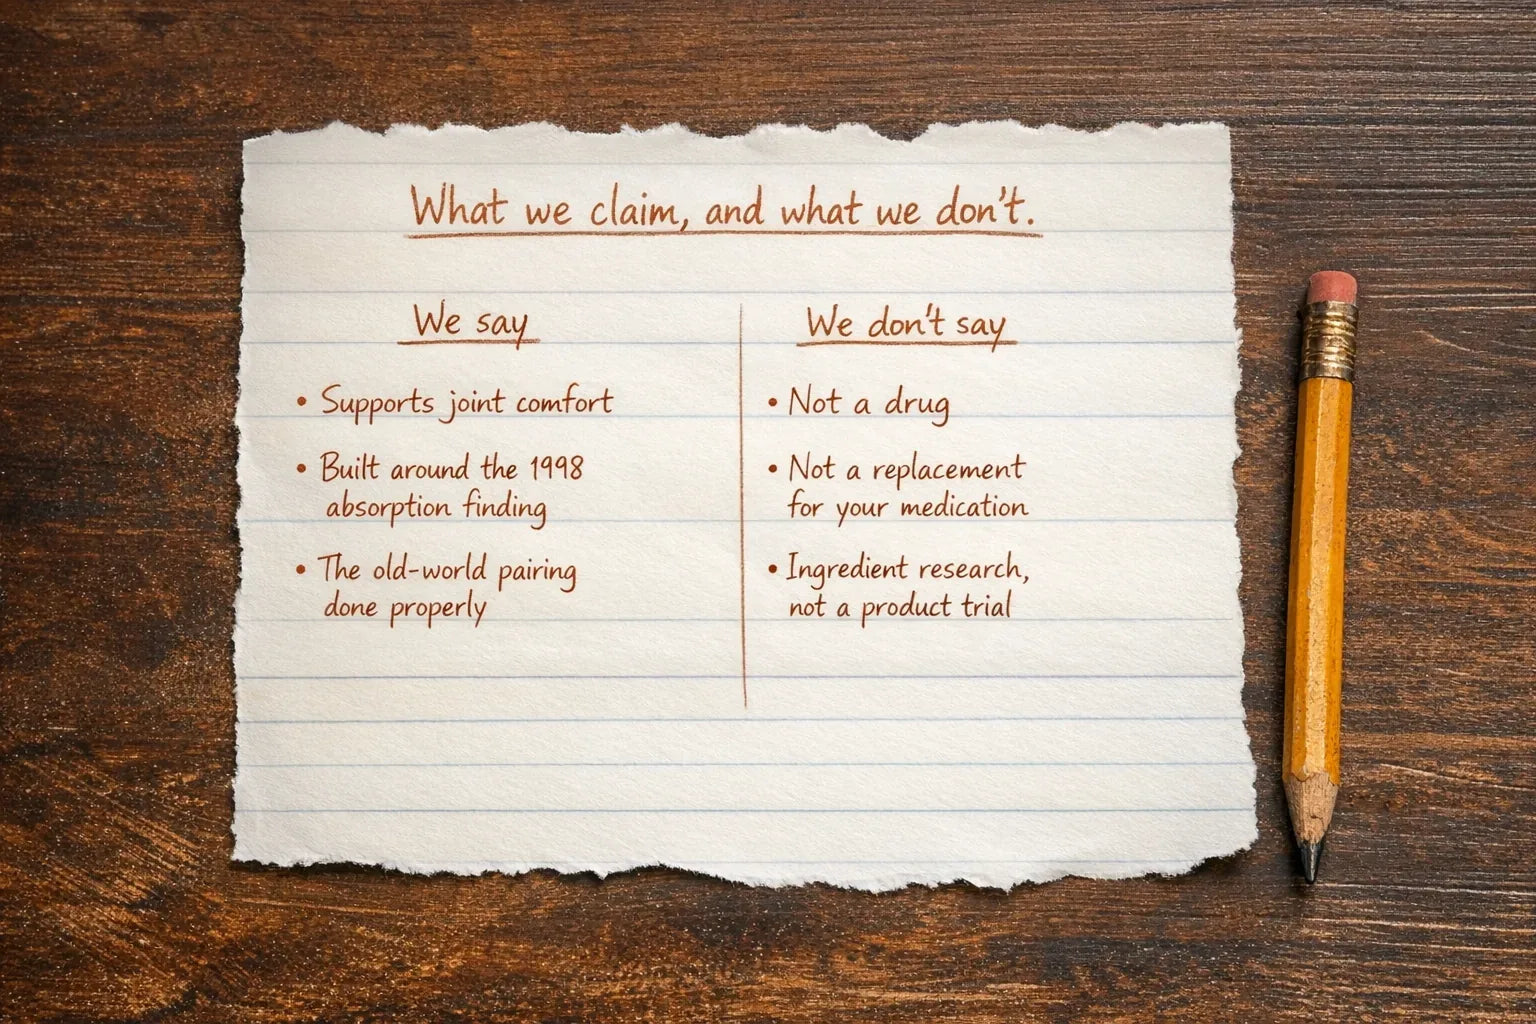 What we claim, and what we don't.
We say
• Supports joint comfort
• Built around the 1998
absorption finding
• The old-world pairing
done properly
We don't say
• Not a drug
• Not a replacement
for your medication
• Ingredient research,
not a product trial